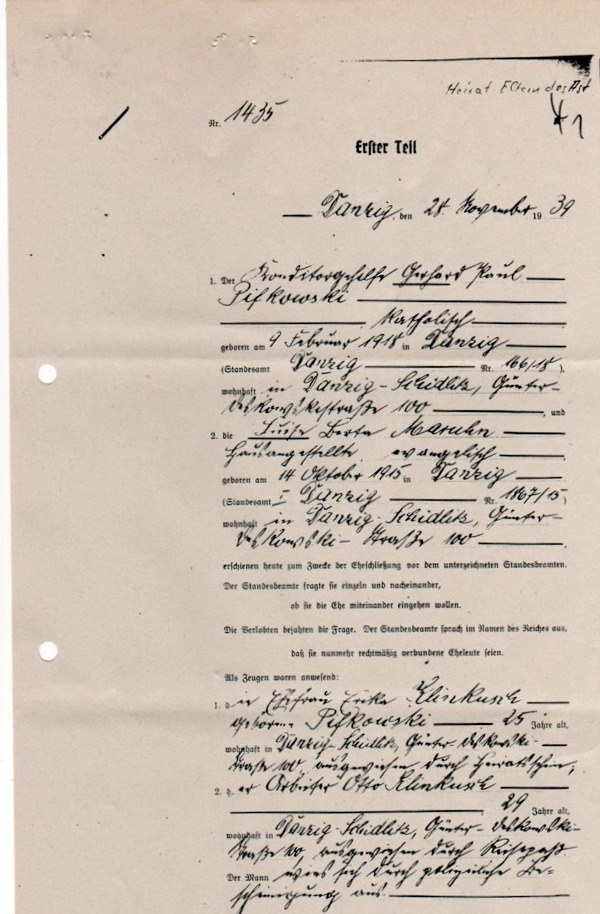 Heirat Eltern des Ast
Nr. 1435
Erster Teil
Danzig, den 28. November 1939
1. Der Konditorgehilfe Gerhard Paul
Pifkowski
katholisch
geboren am 9 Februar 1918 in Danzig
(Standesamt Danzig Nr. 166/18),
wohnhaft in Danzig-Schidlitz, Günter-
Deskowskistraße 100, und
2. die Luise Berta Maruhn
Hausangestellte, evangelisch
geboren am 14 Oktober 1915 in Danzig
(Standesamt I Danzig Nr. 1867/15)
wohnhaft in Danzig-Schidlitz, Günter-
Deskowski-Straße 100,
erschienen heute zum Zwecke der Eheschließung vor dem unterzeichneten Standesbeamten.
Der Standesbeamte fragte sie einzeln und nacheinander,
ob sie die Ehe miteinander eingehen wollen.
Die Verlobten bejahten die Frage. Der Standesbeamte sprach im Namen des Reiches aus,
daß sie nunmehr rechtmäßig verbundene Eheleute seien.
Als Zeugen waren anwesend:
1. die Ehefrau Erika Klinkusch
geborene Pifkowski 25 Jahre alt,
wohnhaft in Danzig-Schidlitz, Günter Deskowski-
Straße 100 ausgewiesen durch Heiratsschein,
2. der Arbeiter Otto Klinkusch
29 Jahre alt,
wohnhaft in Danzig-Schidlitz, Günter-Deskowski-
Straße 100, ausgewiesen durch Reisepaß.
Der Mann wies sich durch polizeiliche Be-
scheinigung aus.